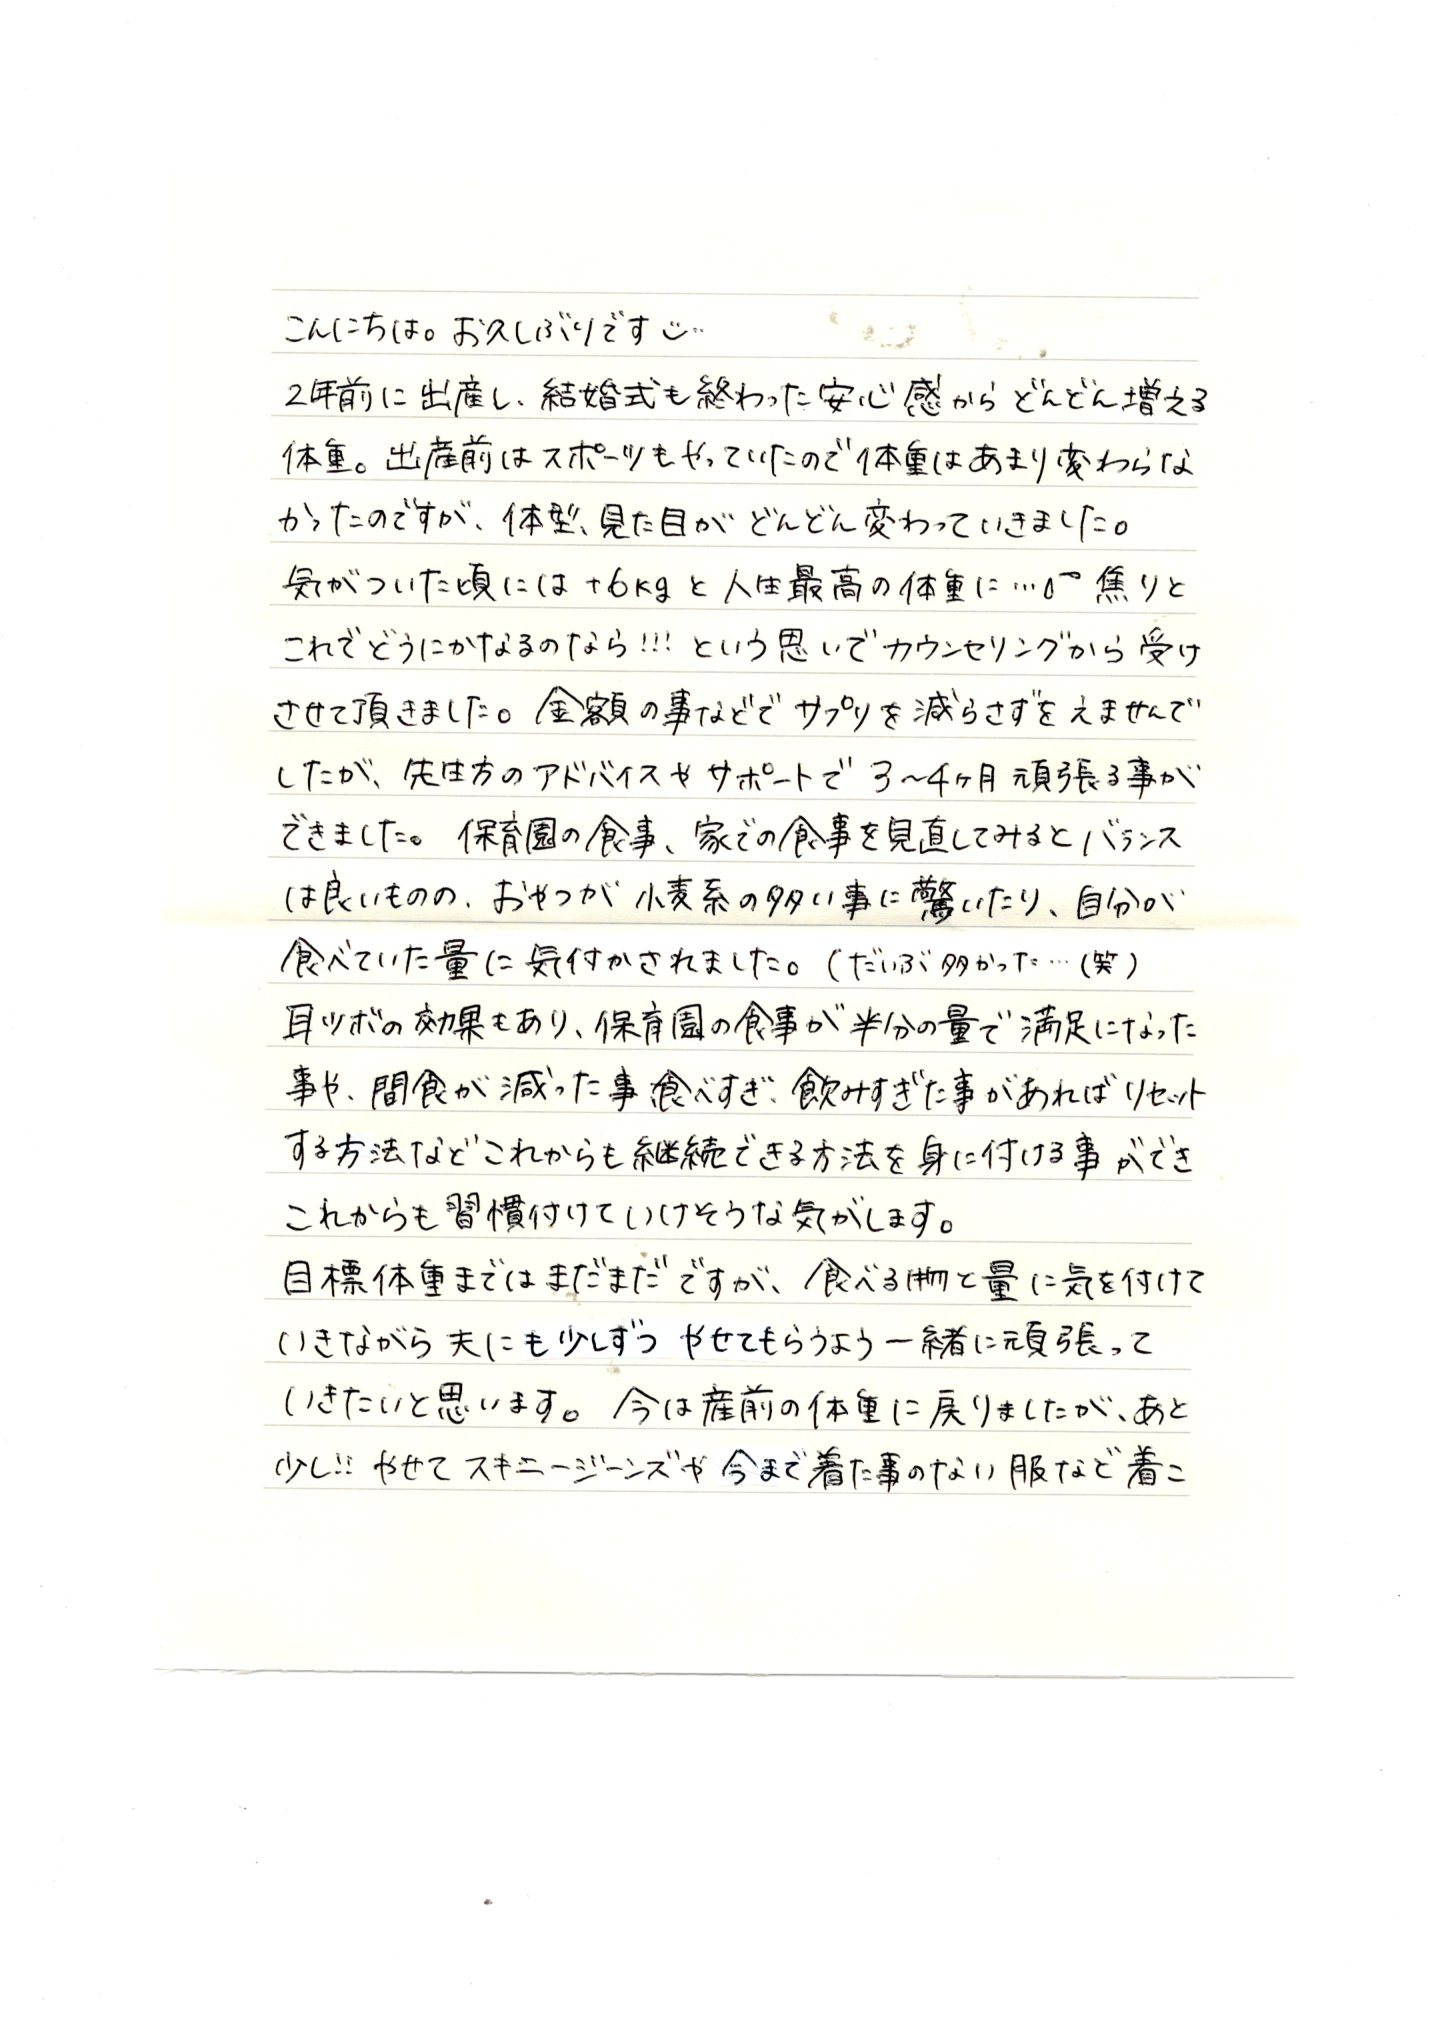 こんにちは。お久しぶりです
2年前に出産し、結婚式も終わった安心感からどんどん増える
体重。出産前はスポーツもやっていたので体重はあまり変わらな
かったのですが、体型、見た目がどんどん変わっていきました。
気がついた頃には+6kgと人生最高の体重に…焦りと
これでどうにかなるのなら!!!という思いでカウンセリングから受け
させて頂きました。金額の事などでサプリを減らさずをえませんで
したが、先生方のアドバイスやサポートで3〜4ヶ月頑張る事が
できました。保育園の食事、家での食事を見直してみるとバランス
は良いものの、おやつが小麦系の多い事に驚いたり、自分が
食べていた量に気付かされました。(だいぶ多かった…(笑)
耳ツボの効果もあり、保育園の食事が半分の量で満足になった
事や、間食が減った事 食べすぎ、飲みすぎた事があればリセット
する方法などこれからも継続できる方法を身に付ける事ができ
これからも習慣付けていけそうな気がします。
目標体重まではまだまだですが、食べる物と量に気を付けて
いきながら夫にも少しずつ やせてもらうよう一緒に頑張って
いきたいと思います。今は産前の体重に戻りましたが、あと
少し!!やせてスキニージーンズや今まで着た事のない服など着こ